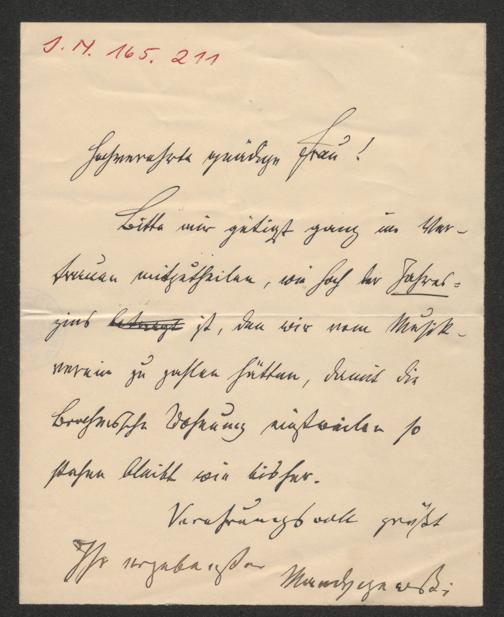 J. N. 165. 211
Hochverehrte gnädige Frau!
Bitte mir gütigst ganz im Ver-
trauen mitzutheilen, wie hoch der Jahres-
zins beträgt ist, den wir vom Musik-
verein zu zahlen hätten, damit die
Brahmssche Wohnung einstweilen so
stehen bleibt wie bisher.
Verehrungsvoll grüßt
Ihr ergebenster
Mandyczewski